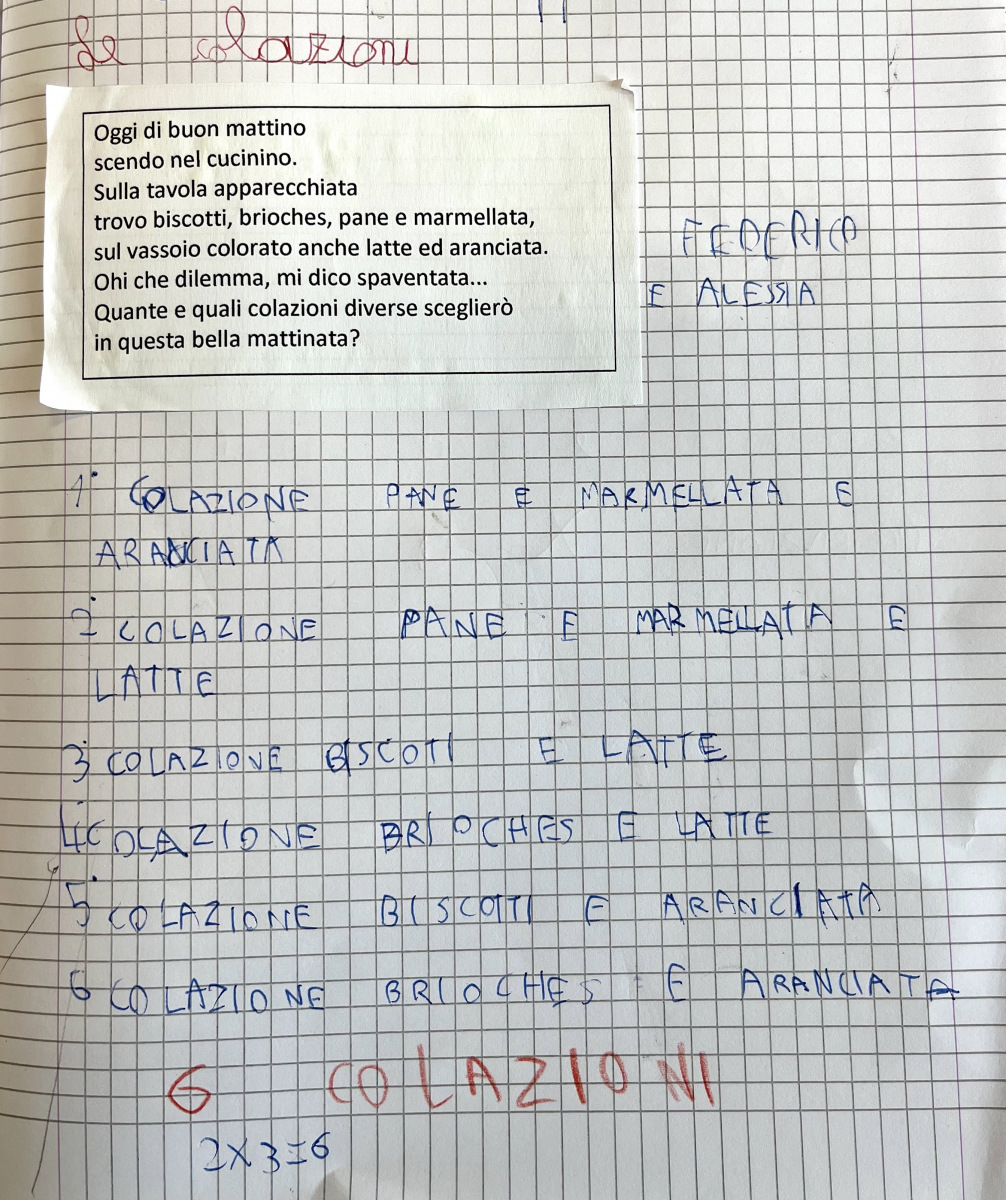 Le colazioni
Oggi di buon mattino
scendo nel cucinino.
Sulla tavola apparecchiata
trovo biscotti, brioches, pane e marmellata,
sul vassoio colorato anche latte ed aranciata.
Ohi che dilemma, mi dico spaventata...
Quante e quali colazioni diverse sceglierò
in questa bella mattinata?
FEDERICO
E ALESSIA
1° COLAZIONE PANE E MARMELLATA E
ARANCIATA
2° COLAZIONE PANE E MARMELLATA E
LATTE
3° COLAZIONE BISCOTI E LATTE
4° COLAZIONE BRIOCHES E LATTE
5° COLAZIONE BISCOTTI E ARANCIATA
6 COLAZIONE BRIOCHES E ARANCIATA
6 COLAZIONI
2X3=6